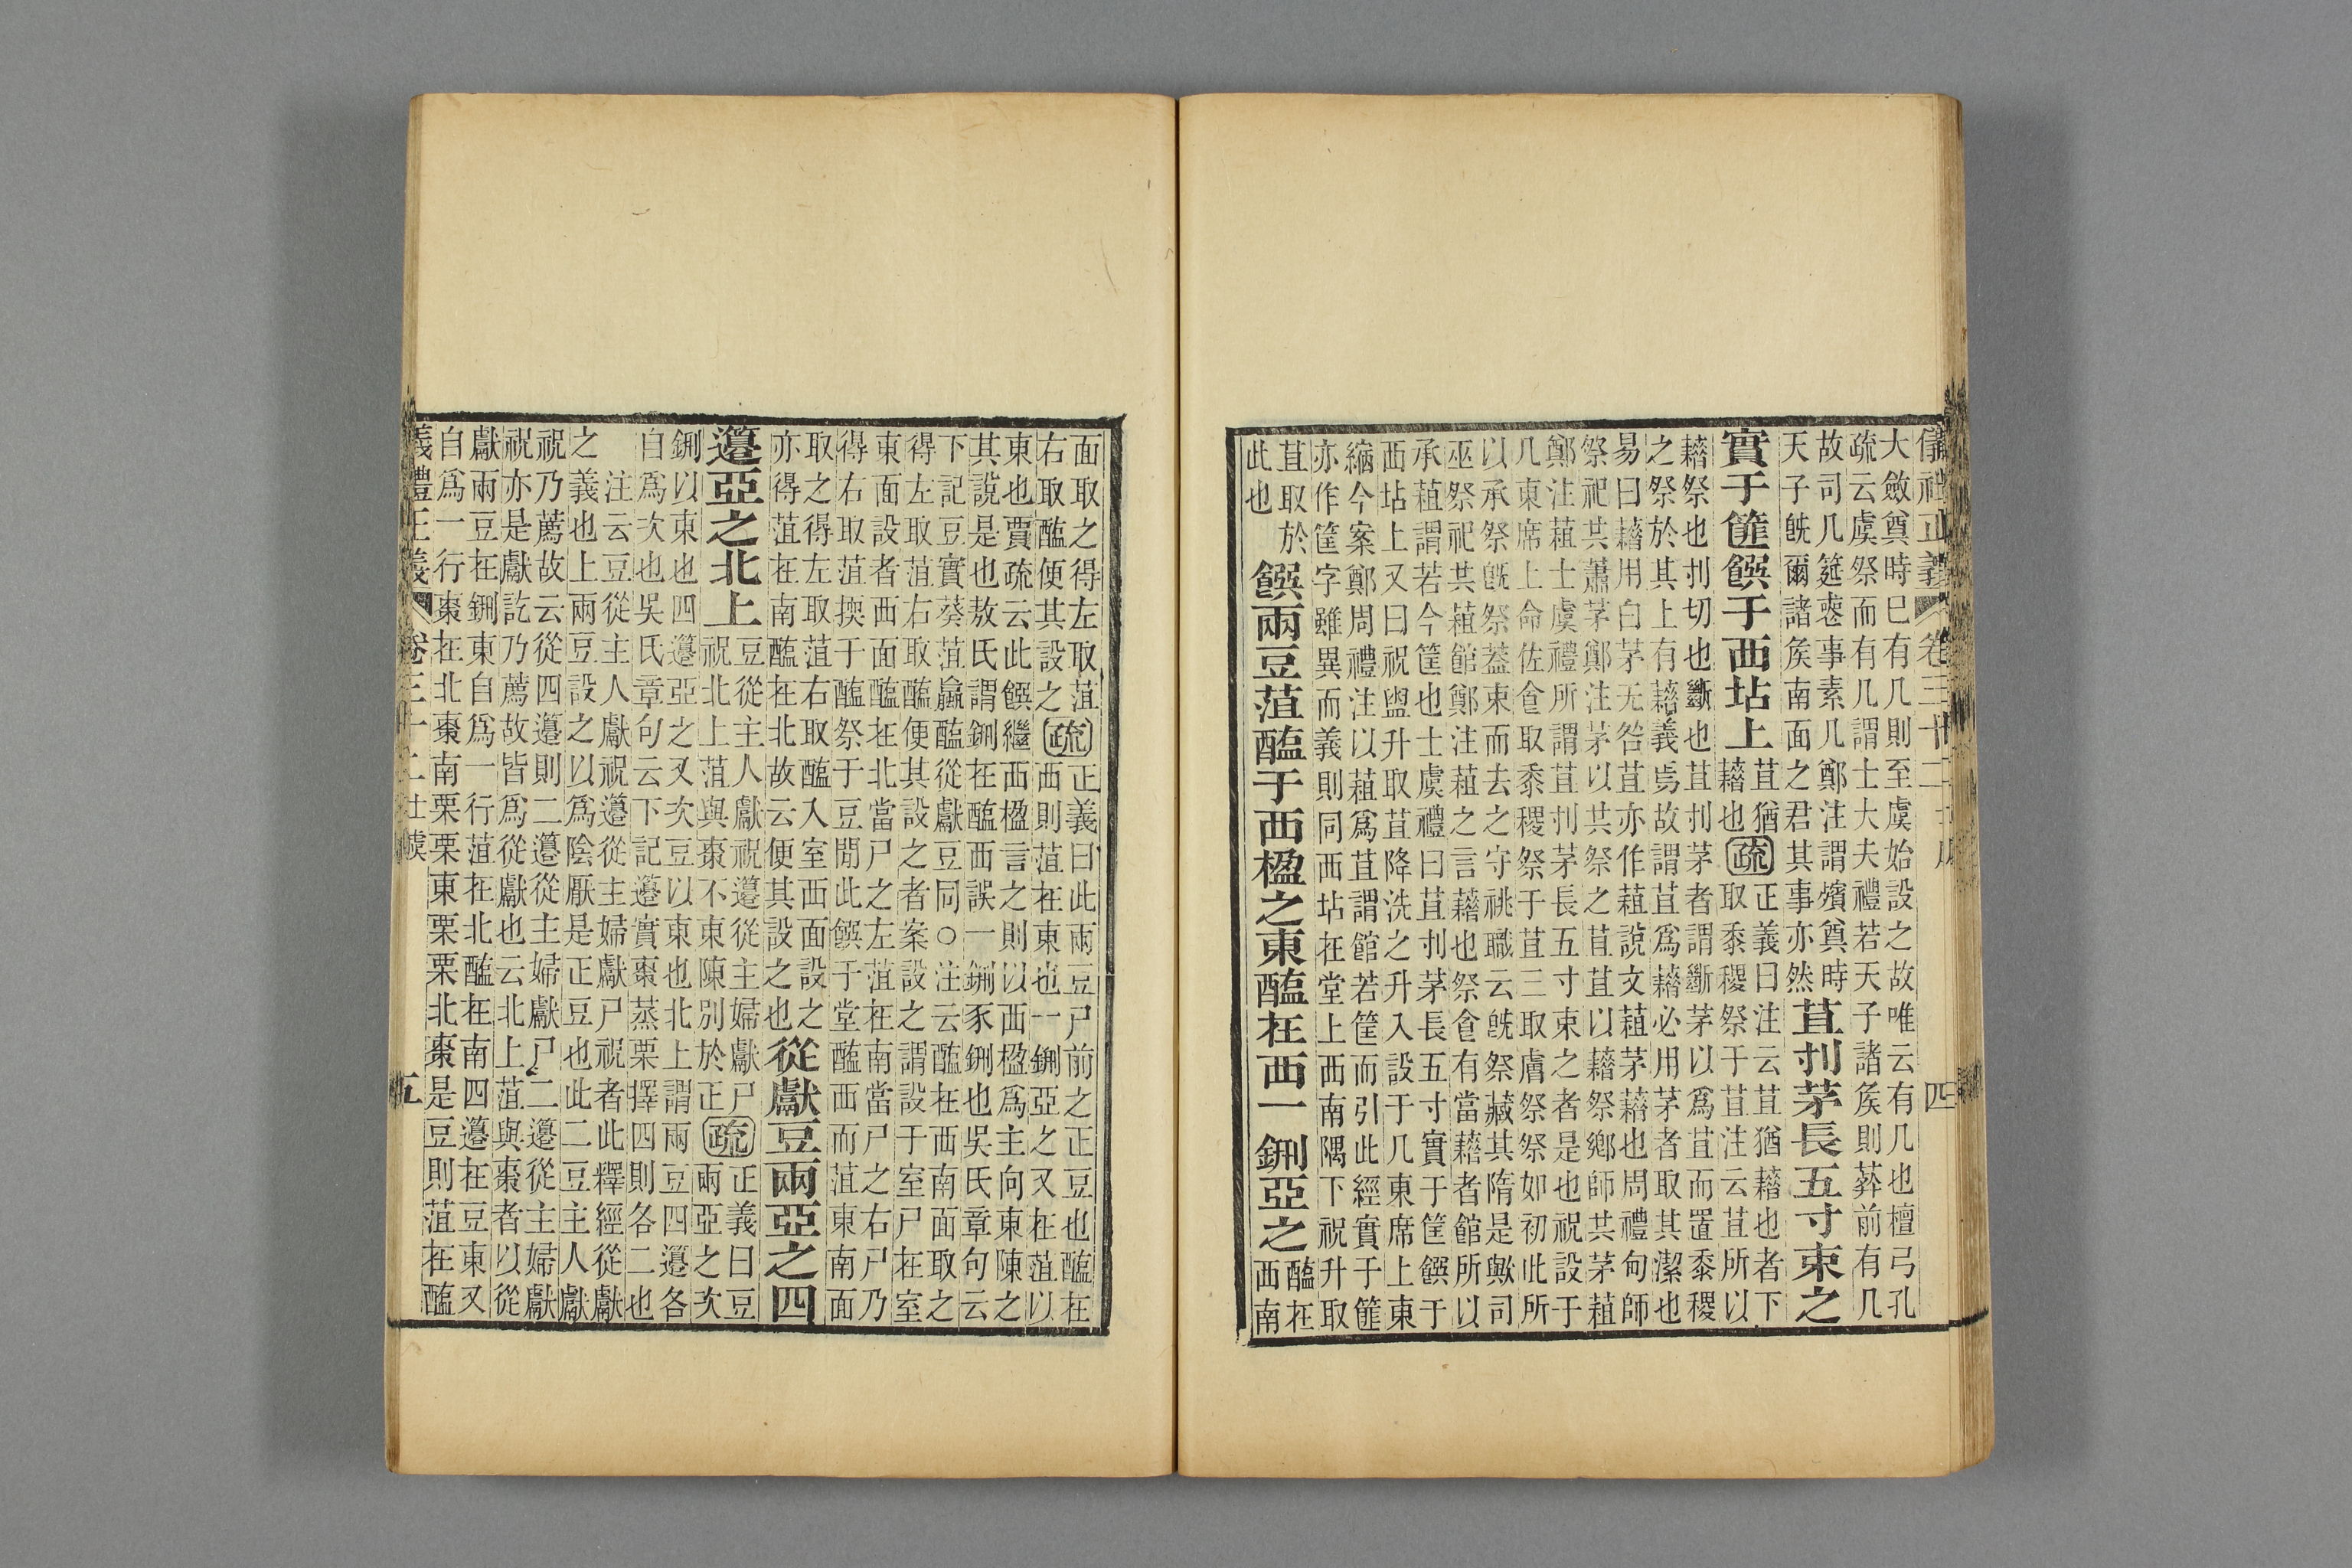 儀禮正義 卷三十二 四
大斂奠時已有几則至虞始設之故唯云有几也檀弓孔
疏云虞祭而有几謂士大夫禮若天子諸矦則葬前有几
故司几筵䘮事素几鄭注謂殯奠時
天子旣爾諸矦南面之君其事亦然
苴刌茅長五寸束之
實于篚饌于西坫上
苴猶
藉也
疏
正義曰注云苴猶藉也者下
取黍稷祭于苴注云苴所以
藉祭也刌切也斷也苴刌茅者謂斷茅以爲苴而置黍稷
之祭於其上有藉義焉故謂苴爲藉必用茅者取其潔也
易曰藉用白茅无咎苴亦作蒩說文蒩茅藉也周禮甸師
祭祀共蕭茅鄭注茅以共祭之苴苴以藉祭鄉師共茅蒩
鄭注蒩士虞禮所謂苴刌茅長五寸束之者是也祝設于
几東席上命佐食取黍稷祭于苴三取膚祭祭如初此所
以承祭旣祭葢束而去之守祧職云旣祭藏其隋是歟司
巫祭祀共蒩館鄭注蒩之言藉也祭食有當藉者館所以
承蒩謂若今筐也士虞禮曰苴刌茅長五寸實于筐饌于
西坫上又曰祝盥升取苴降洗之升入設于几東席上東
縮今案鄭周禮注以蒩爲苴謂館若筐而引此經實于篚
亦作筐字雖異而義則同西坫在堂上西南隅下祝升取
苴取於
此也
饌兩豆菹醢于西楹之東醢在西一鉶亞之
醢在
西南
面取之得左取菹
右取醢便其設之
疏
正義曰此兩豆尸前之正豆也醢在
西則菹在東也一鉶亞之又在菹以
東也賈疏云此饌繼西楹言之則以西楹爲主向東陳之
其說是也敖氏謂鉶在醢西誤一鉶豕鉶也吳氏章句云
下記豆實葵菹蠃醢從獻豆同○注云醢在西南面取之
得左取菹右取醢便其設之者案設之謂設于室尸在室
東面設者西面醢在北當尸之左菹在南當尸之右尸乃
得右取菹擩于醢祭于豆閒此饌于堂醢西而菹東南面
取之得左取菹右取醢入室西面設之
亦得菹在南醢在北故云便其設之也
從獻豆兩亞之四
籩亞之北上
豆從主人獻祝籩從主婦獻尸
祝北上菹與棗不東陳別於正
疏
正義曰豆
兩亞之次
鉶以東也四籩亞之又次豆以東也北上謂兩豆四籩各
自爲次也吳氏章句云下記籩實棗蒸栗擇四則各二也
注云豆從主人獻祝籩從主婦獻尸祝者此釋經從獻
之義也上兩豆設之以爲陰厭是正豆也此二豆主人獻
祝乃薦故云從四籩則二籩從主婦獻尸二籩從主婦獻
祝亦是獻訖乃薦故皆爲從獻也云北上菹與棗者以從
獻兩豆在鉶東自爲一行菹在北醢在南四籩在豆東又
自爲一行棗在北棗南栗栗東栗栗北棗是豆則菹在醢
禮正義 卷三十二 士虞 五